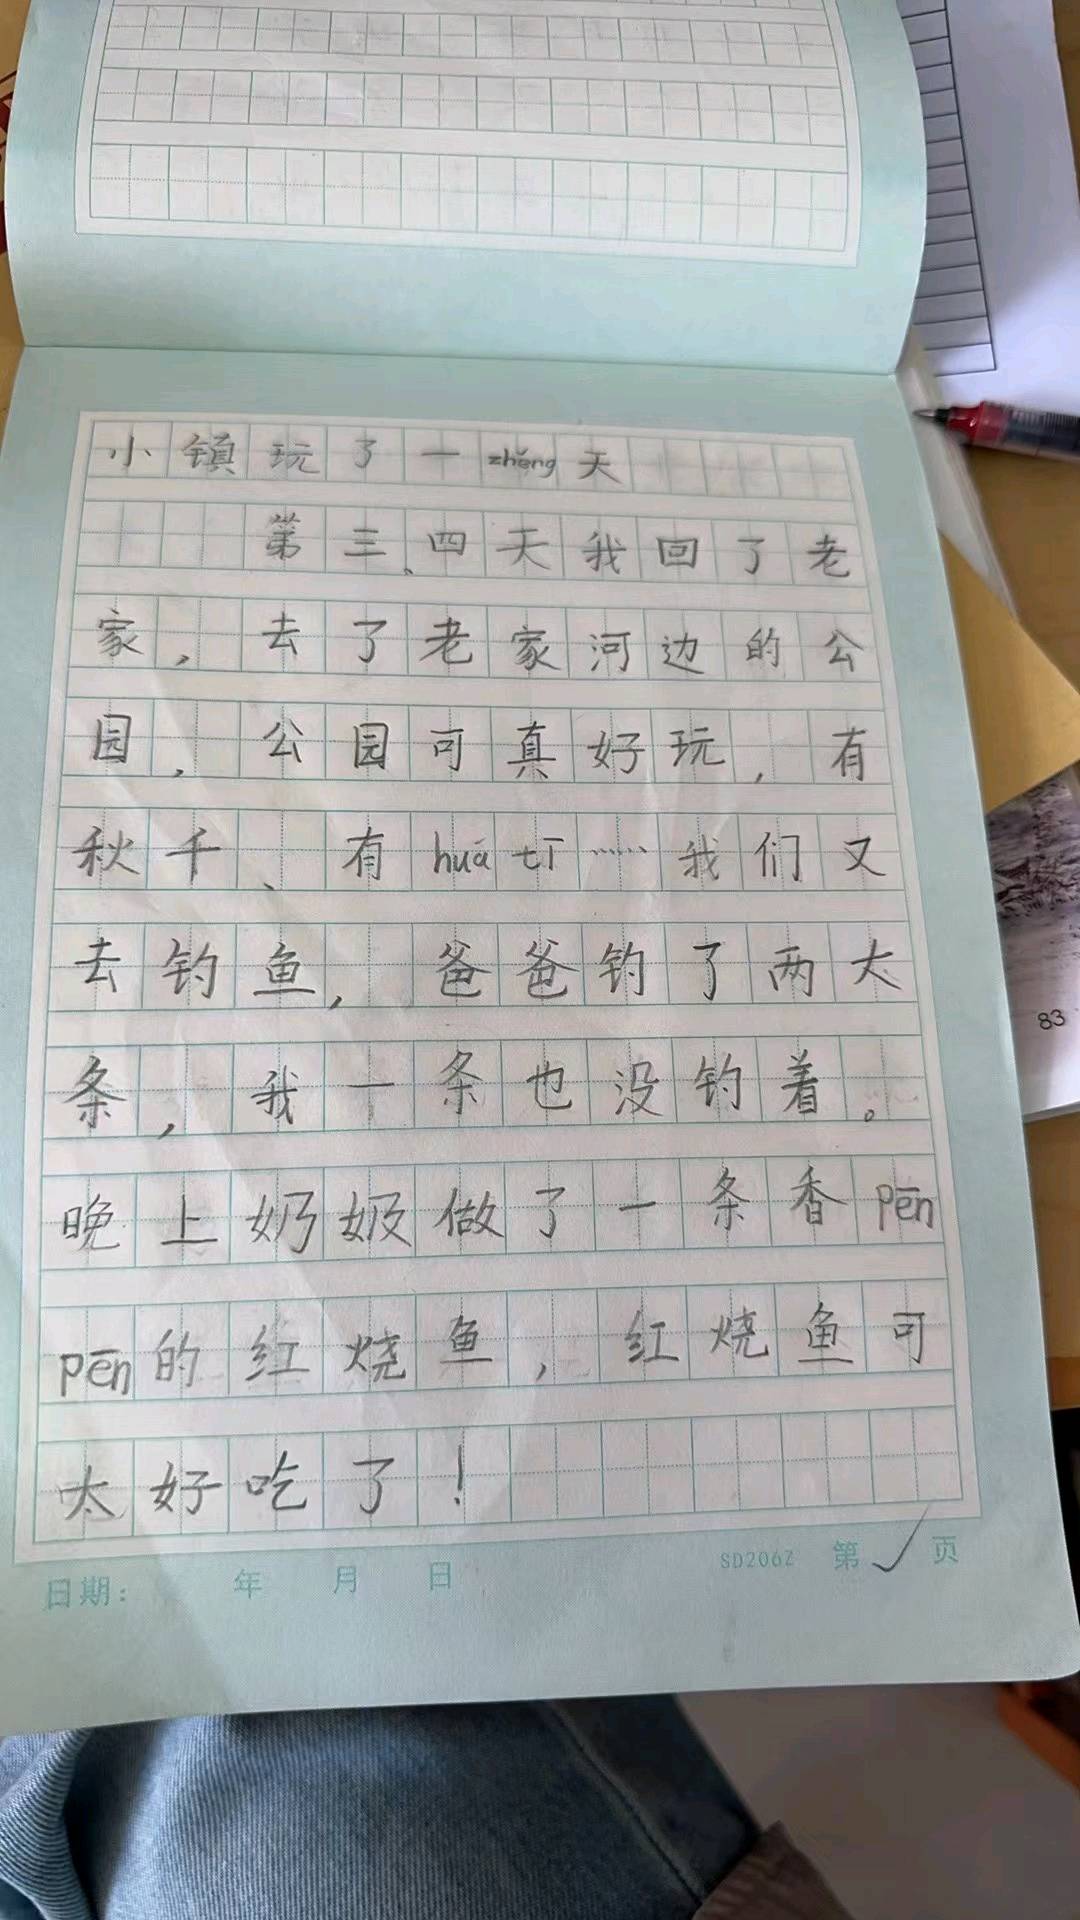 小镇玩了一zhěng天
第三、四天我回了老
家，去了老家河边的公
园，公园可真好玩，有
秋千、有huá tī……我们又
去钓鱼，爸爸钓了两大
条，我一条也没钓着。
晚上奶奶做了一条香pēn
pēn的红烧鱼，红烧鱼可
太好吃了！
日期： 年 月 日 SD206Z 第 页
83